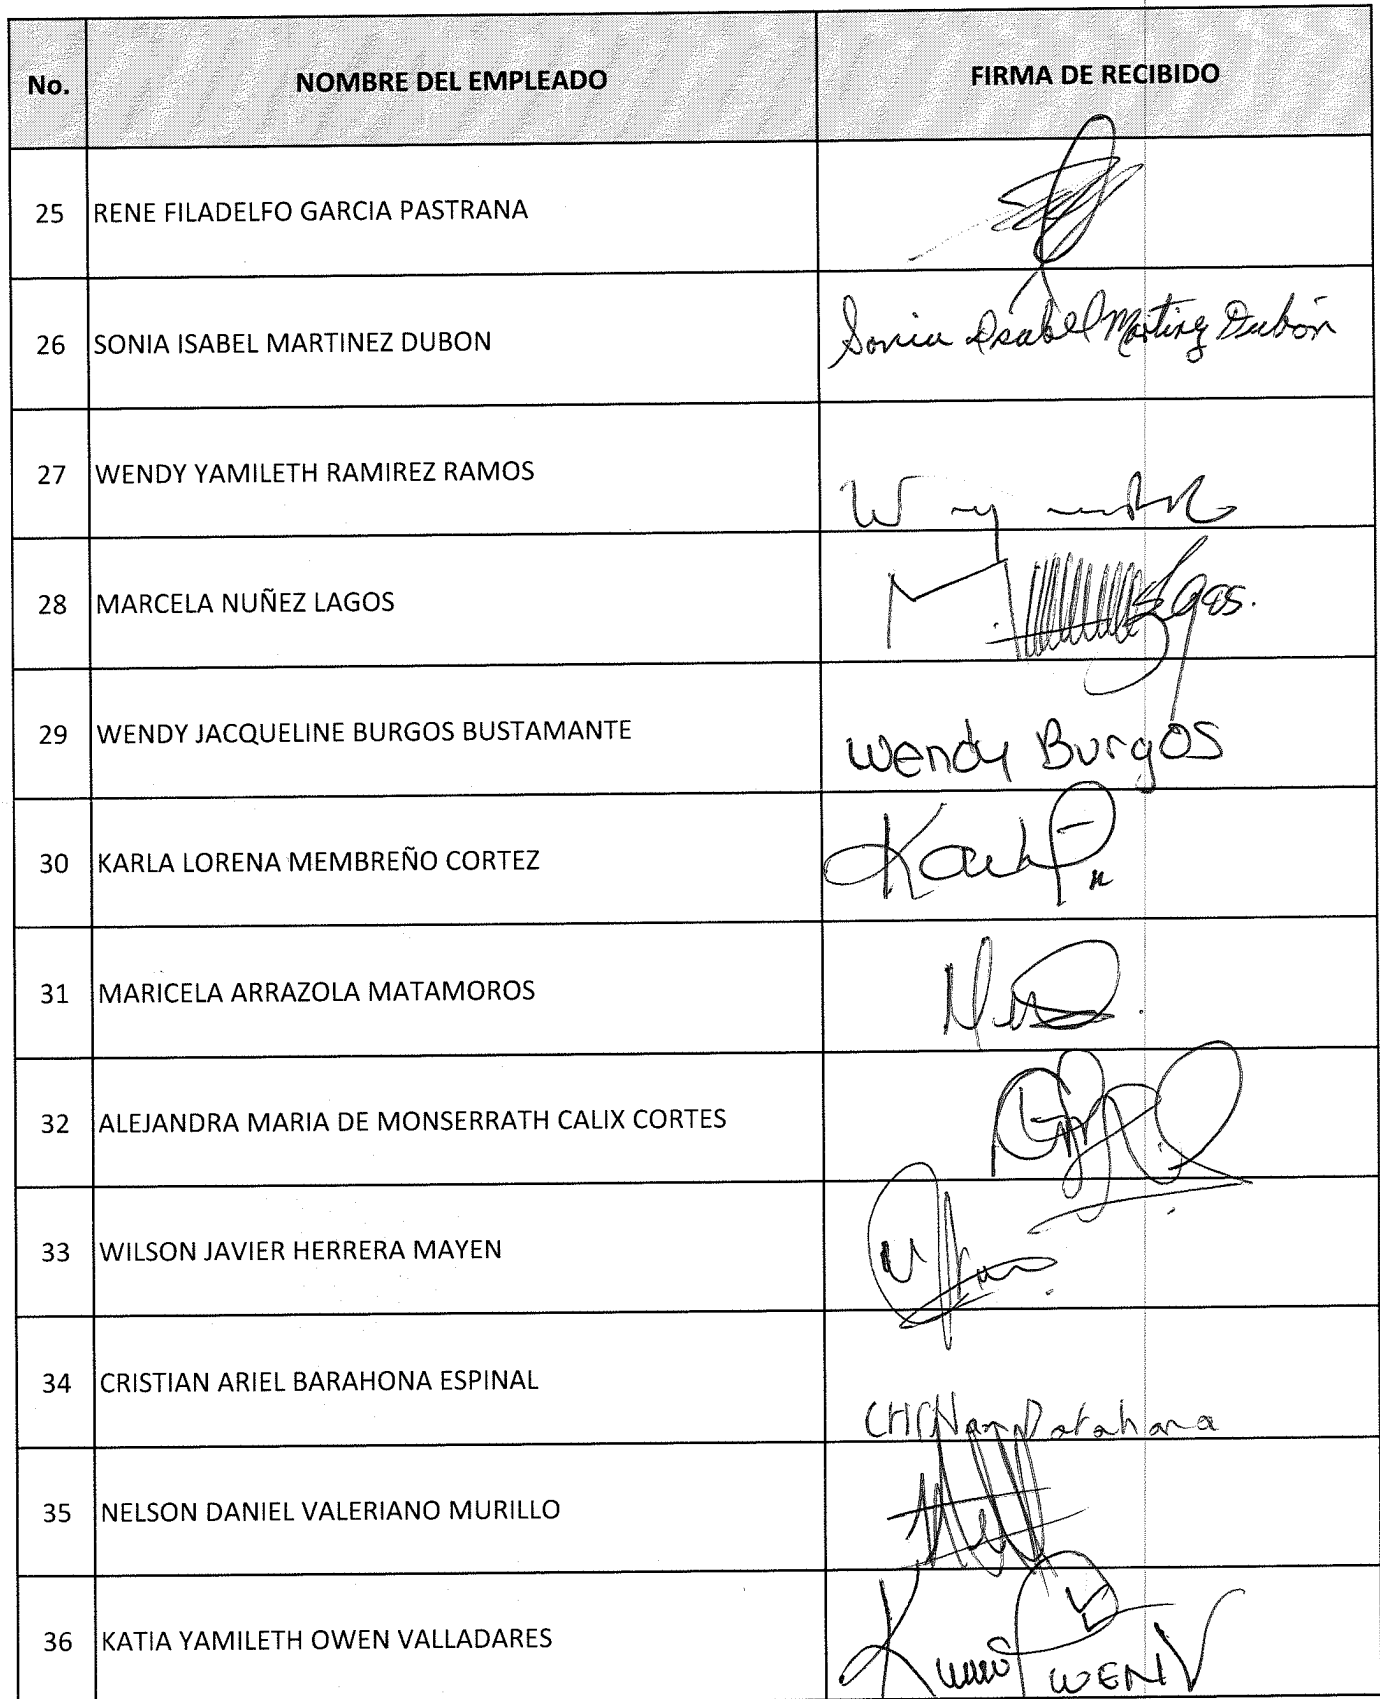 No. NOMBRE DEL EMPLEADO FIRMA DE RECIBIDO
25 RENE FILADELFO GARCIA PASTRANA
26 SONIA ISABEL MARTINEZ DUBON Sonia Isabel Martinez Dubón
27 WENDY YAMILETH RAMIREZ RAMOS
28 MARCELA NUÑEZ LAGOS
29 WENDY JACQUELINE BURGOS BUSTAMANTE Wendy Burgos
30 KARLA LORENA MEMBREÑO CORTEZ
31 MARICELA ARRAZOLA MATAMOROS
32 ALEJANDRA MARIA DE MONSERRATH CALIX CORTES
33 WILSON JAVIER HERRERA MAYEN
34 CRISTIAN ARIEL BARAHONA ESPINAL
35 NELSON DANIEL VALERIANO MURILLO
36 KATIA YAMILETH OWEN VALLADARES